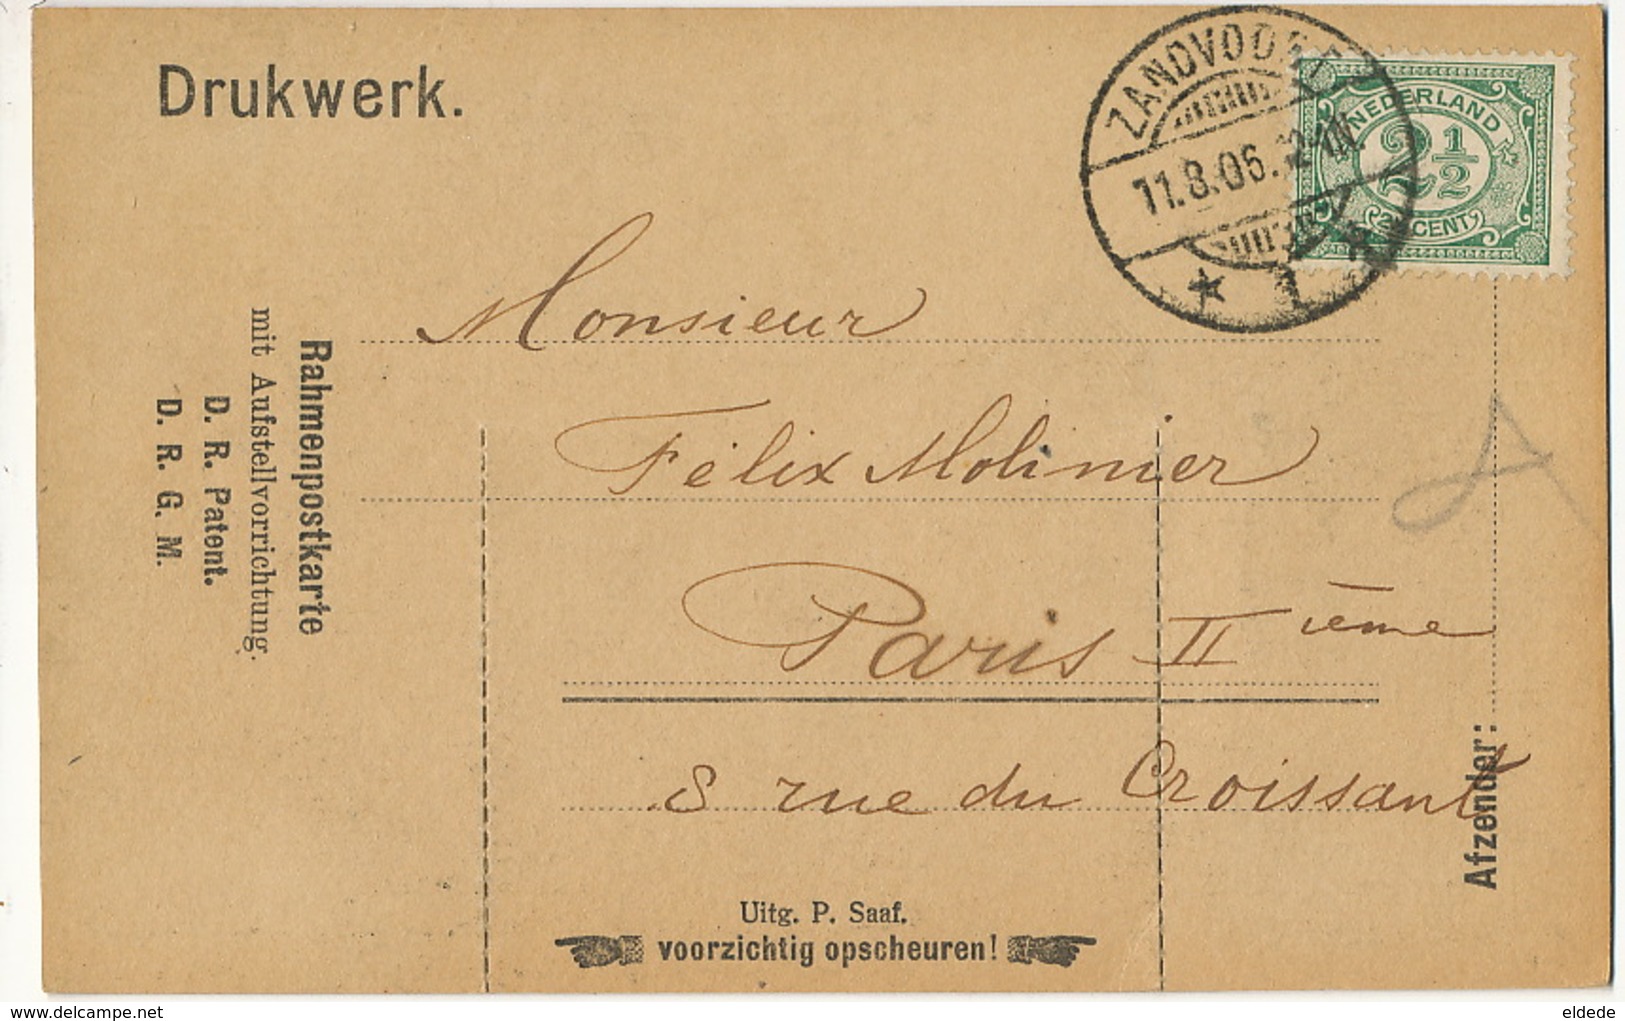 Drukwerk.
ZANDVOORT
11.8.06. 12-1N.
1
NEDERLAND
2 1/2
2½ CENT
Rahmenpostkarte
mit Aufstellvorrichtung.
D. R. Patent.
D. R. G. M.
Monsieur
Félix Molinier
Paris IIème
8 rue du Croissant
Afzender:
Uitg. P. Saaf.
voorzichtig opscheuren!
www.delcampe.net
eldede